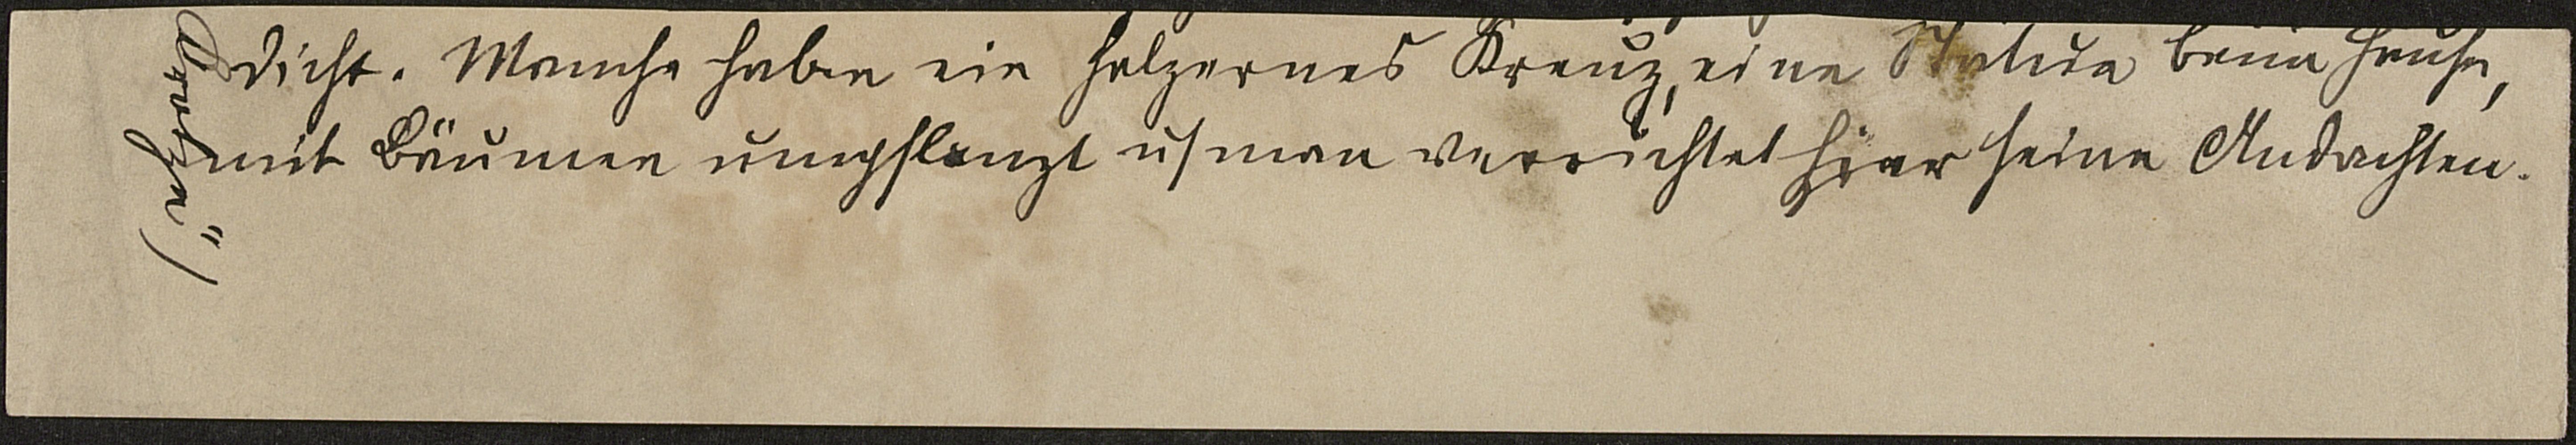 dicht. Manche haben ein holzernes Kreuz, eine Statue beim Hause,
mit Bäumen umpflanzt u/ man verrichtet hier seine Andachten.